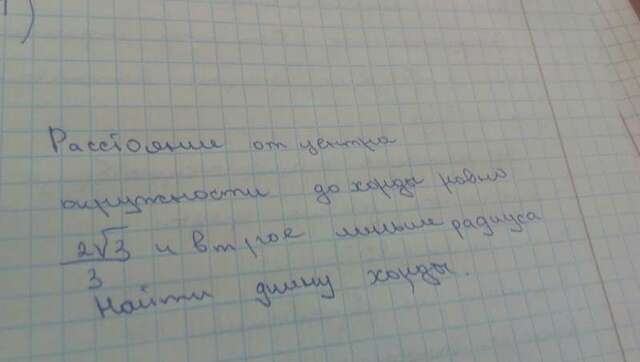 1)
Расстояние от центра
окружности до хорды равно
2√3/3 и втрое меньше радиуса
Найти длину хорды.